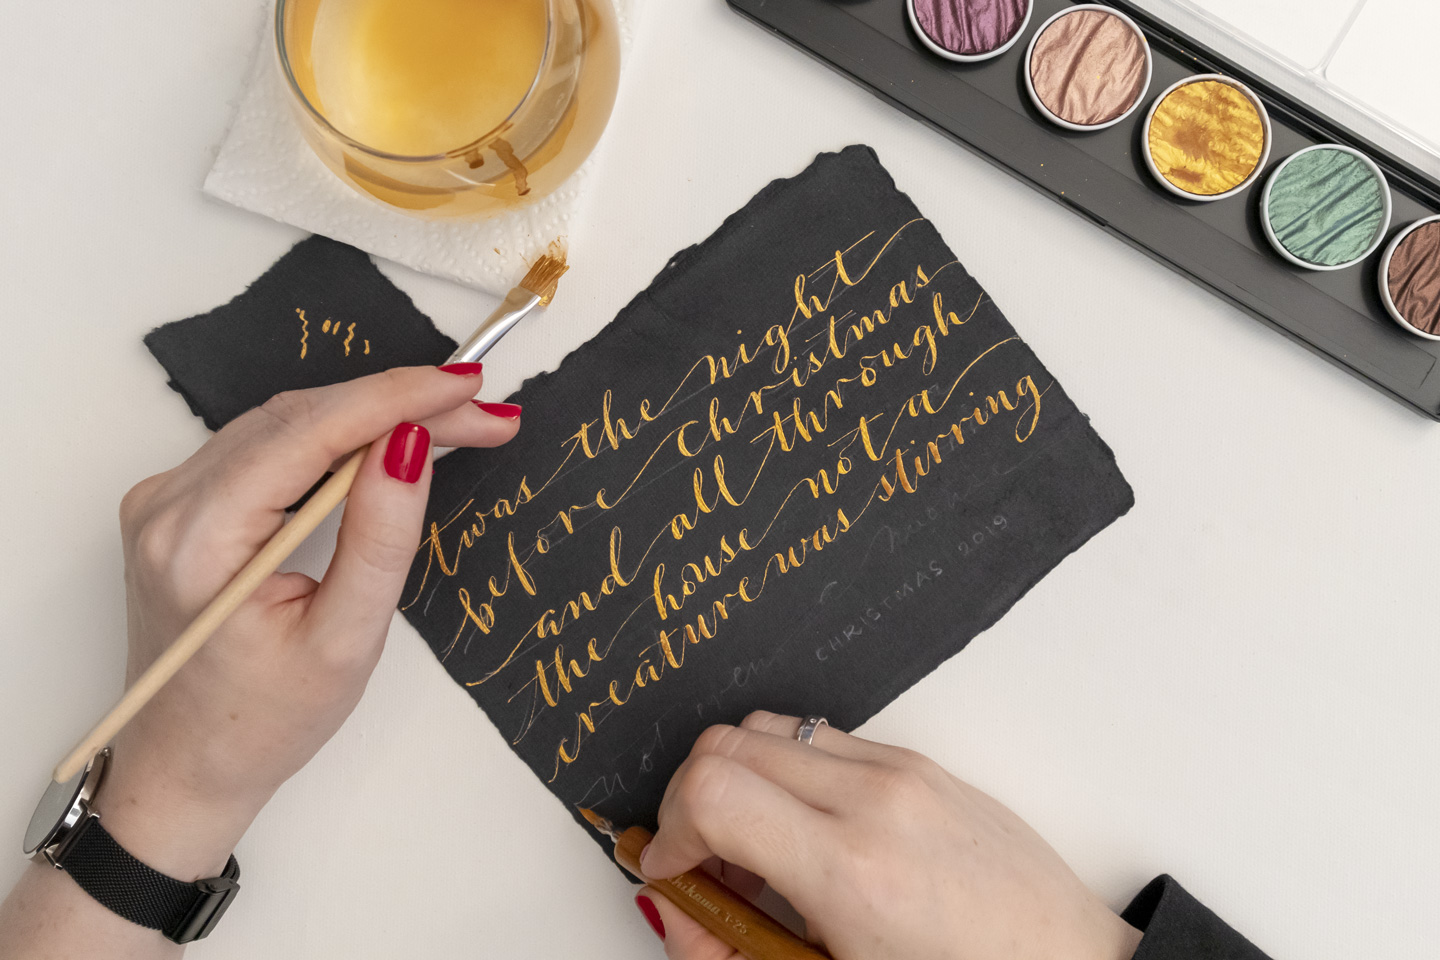 twas the night
before Christmas
and all through
the house not a
creature was stirring
not even a mouse
CHRISTMAS 2019
T-25